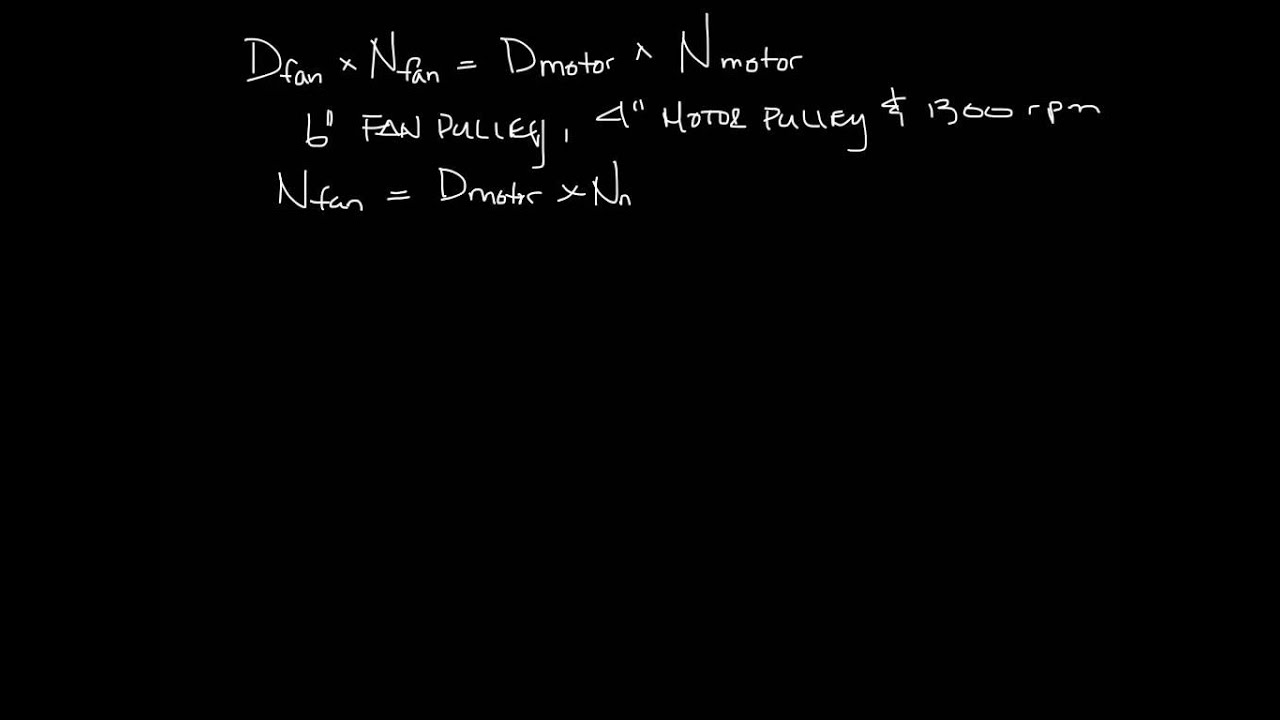 Dfan × Nfan = Dmotor × Nmotor
6" FAN PULLEY, 4" MOTOR PULLEY & 1300 rpm
Nfan = Dmotor × Nn